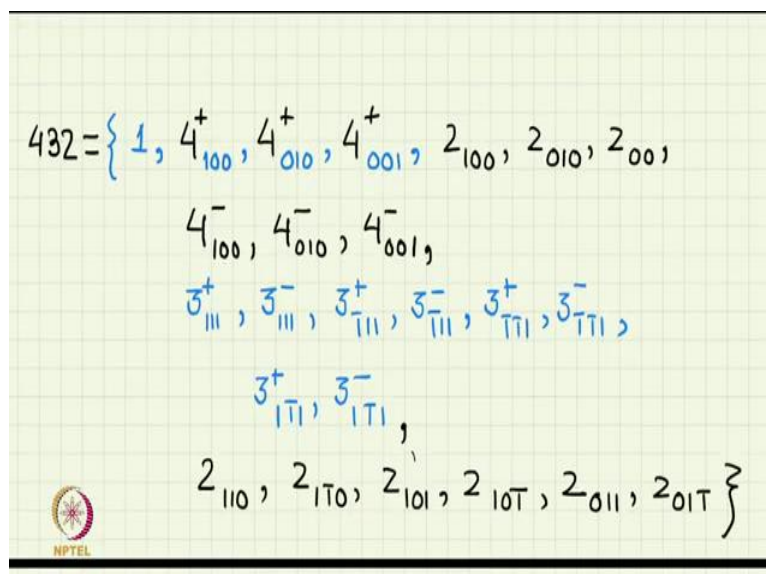 432 = { 1, 4⁺₁₀₀, 4⁺₀₁₀, 4⁺₀₀₁, 2₁₀₀, 2₀₁₀, 2₀₀,
4⁻₁₀₀, 4⁻₀₁₀, 4⁻₀₀₁,
3⁺₁₁₁, 3⁻₁₁₁, 3⁺₁̅₁₁, 3⁻₁̅₁₁, 3⁺₁̅₁̅₁, 3⁻₁̅₁̅₁,
3⁺₁₁̅₁, 3⁻₁₁̅₁,
2₁₁₀, 2₁₁̅₀, 2₁₀₁, 2₁₀₁̅, 2₀₁₁, 2₀₁₁̅ }
NPTEL